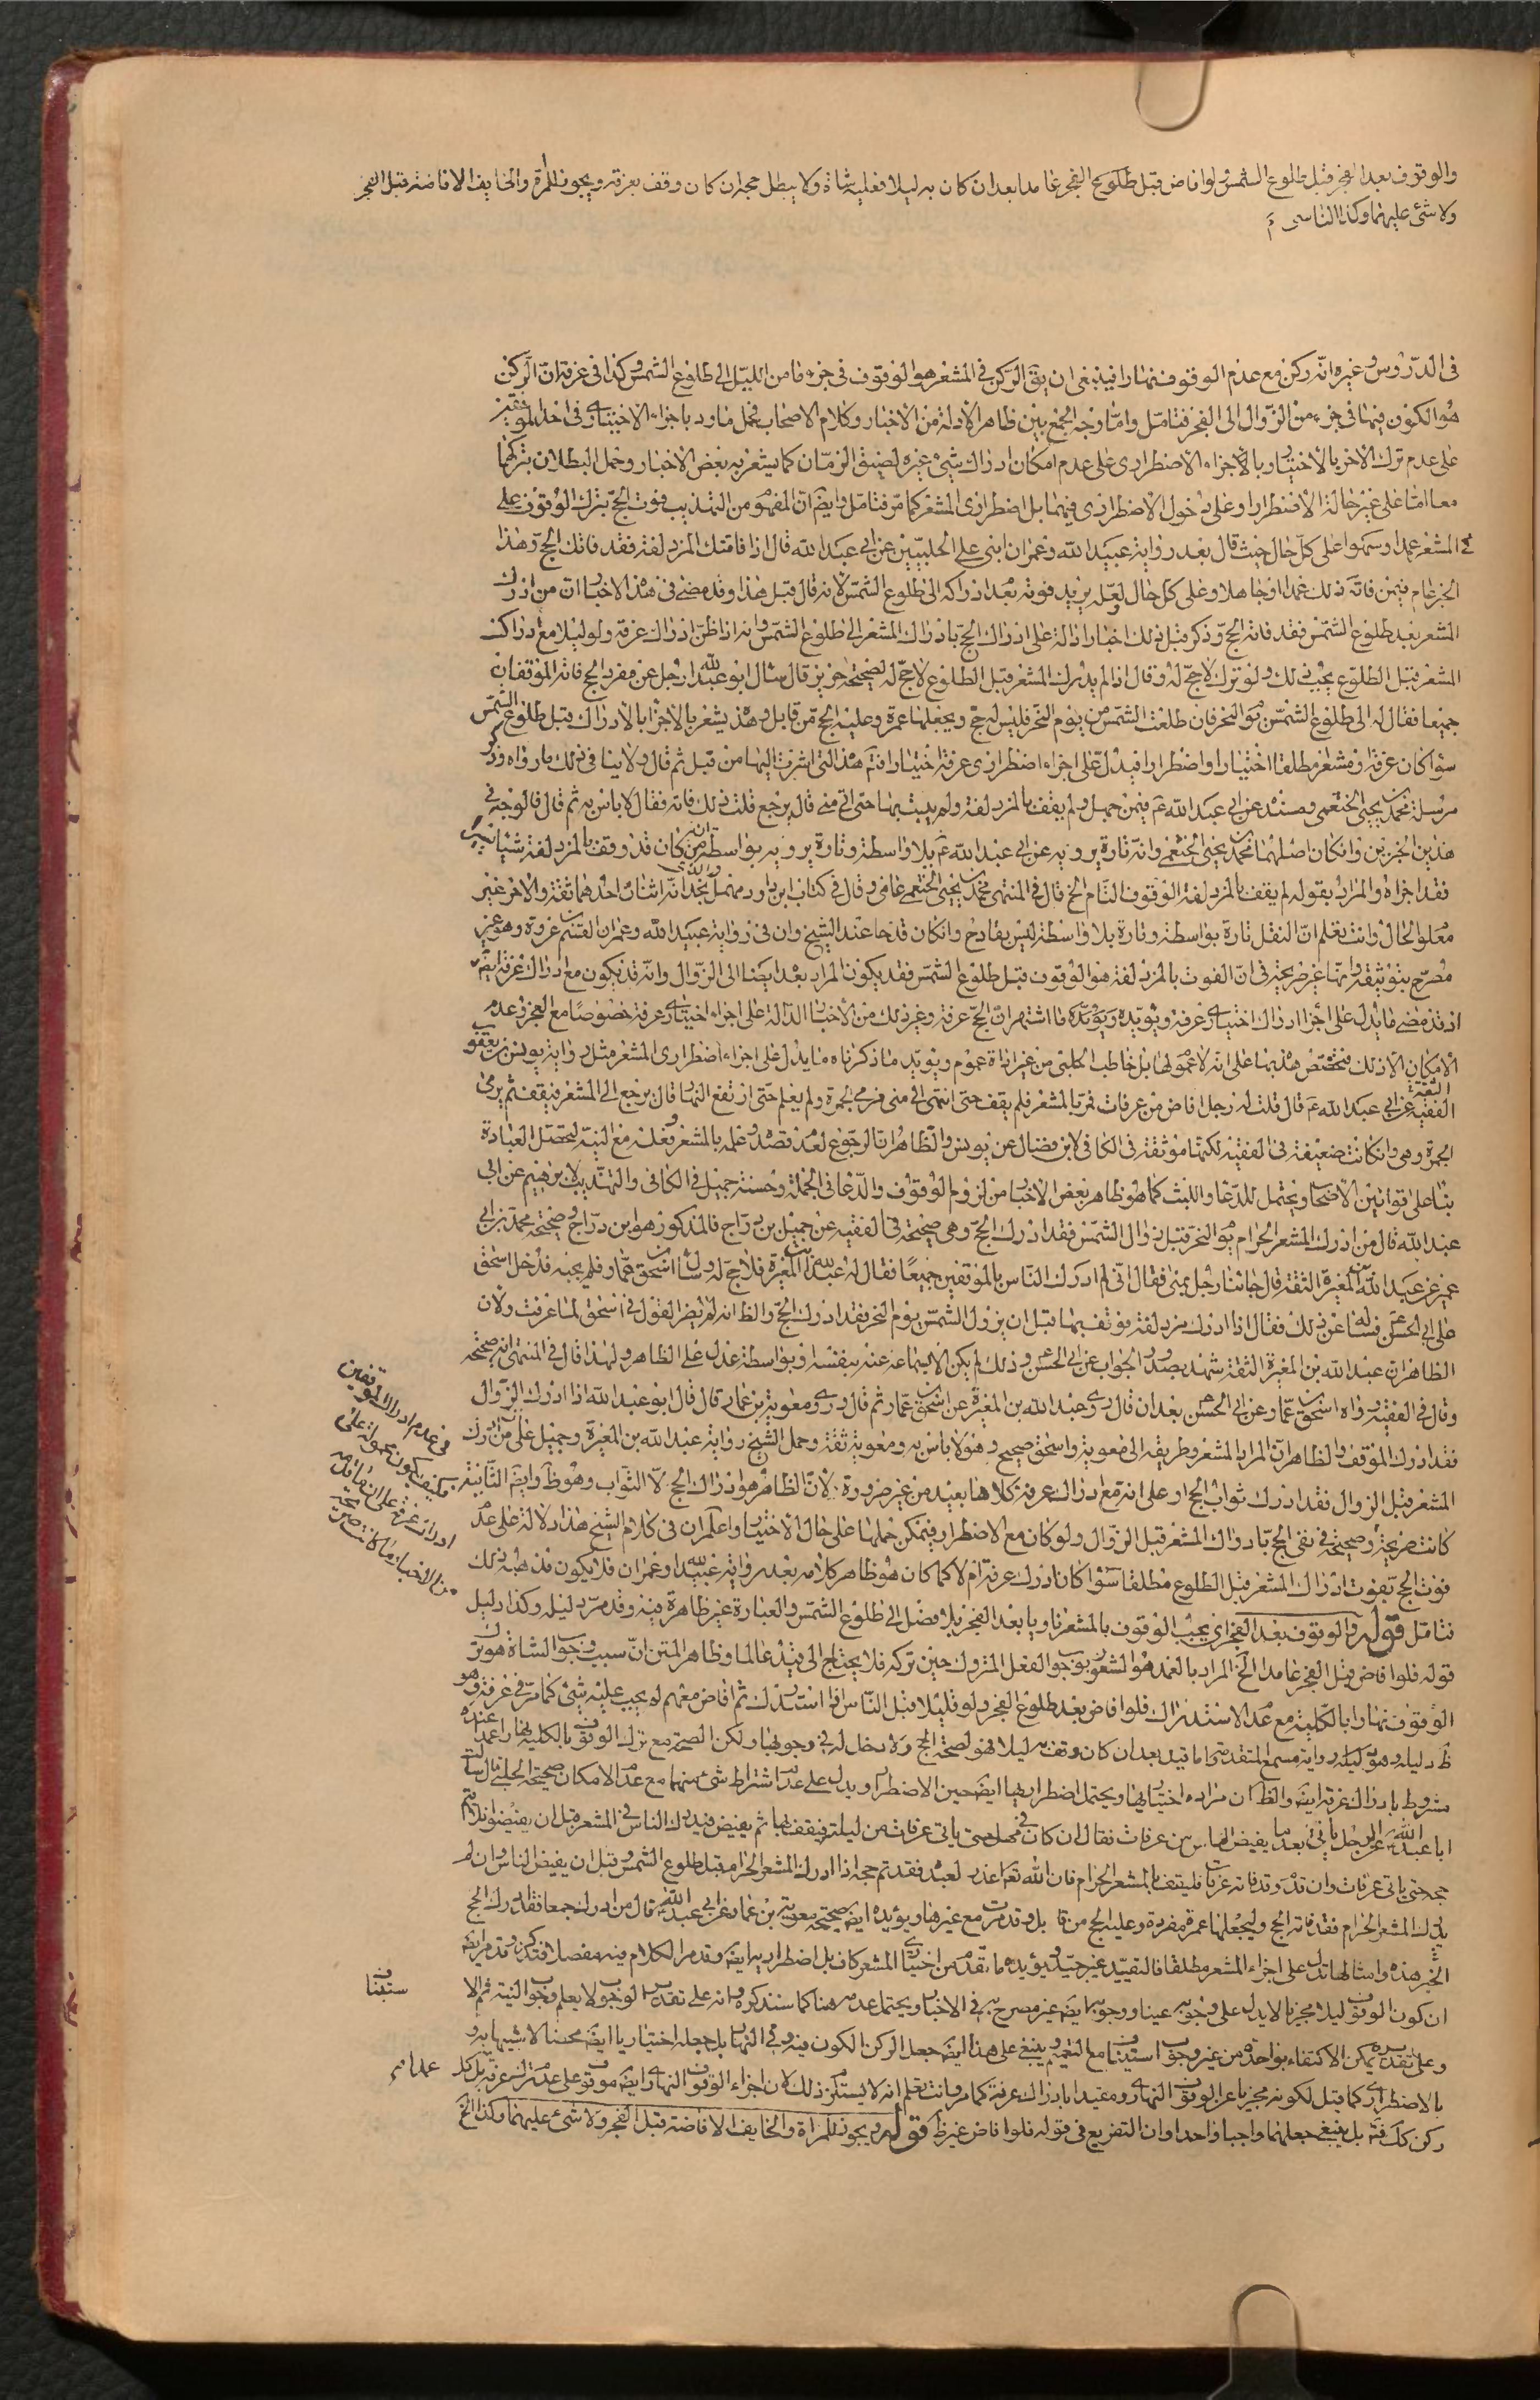 والوقوف بعد الفجر قبل طلوع الشمس ولو افاض قبل طلوع الفجر عامدا بعد ان كان به ليلا فعليه شاة ولا يبطل حجه ان كان وقف بعرفة ويجوز للمراة والخايف الافاضة قبل الفجر
ولا شئ عليهما وكذا الناسى
فى الدروس وغيره انه ركن مع عدم الوقوف نهارا فينبغى ان يق الركن فى المشعر هو الوقوف فى جزء ما من الليل الى طلوع الشمس وكذا فى عرفة ان الركن
هو الكون فيها فى جزء من الزوال الى الفجر فتامل واما وجه الجمع بين ظاهر الادلة من الاخبار وكلام الاصحاب فحمل ما ورد باجزاء الاختيارى فى احد الموقفين
على عدم ترك الاخر بالاختيار وبالاجزاء الاضطرارى على عدم امكان ادراك شئ غيره لضيق الزمان كما يشعر به بعض الاخبار وحمل البطلان بتركها
معا اما على غير حالة الاضطرار او على دخول الاضطرارى فيهما بل اضطرارى المشعر كما مر فتامل وايضا ان المفهوم من التهذيب فوت الحج بترك الوقوف على
المشعر عمدا وسهوا على كل حال حيث قال بعد رواية عبيد الله وعمران ابنى على الحلبيين عن ابى عبد الله قال اذا فاتتك المزدلفة فقد فاتك الحج وهذا
الخبر عام فيمن فاته ذلك عمدا او جاهلا وعلى كل حال لعله يريد فوته بعد ادراكه الى طلوع الشمس لانه قال قبل هذا وقد مضى فى هذه الاخبار ان من ادرك
المشعر بعد طلوع الشمس فقد فاته الحج وذكر قبل ذلك اخبارا دالة على ادراك الحج بادراك المشعر الى طلوع الشمس وانه اذا ظن ادراك عرفة ولو ليلا مع ادراك
المشعر قبل الطلوع يجب ذلك ولو ترك لا حج له وقال اذا لم يدرك المشعر قبل الطلوع لا حج له لصحيحة حريز قال سئل ابو عبد الله رجل عن مفرد الحج فاته الموقفان
جميعا فقال له الى طلوع الشمس يوم النحر فان طلعت الشمس من يوم النحر فليس له حج ويجعلها عمرة وعليه الحج من قابل وهذه يشعر بالاجزا بالادراك قبل طلوع الشمس
سواء كان عرفة ومشعر مطلقا اختيارا واضطرارا فيدل على اجزاء اضطرارى عرفة اختيارا فتم هذا التى اشرت اليها من قبل ثم قال ولا ينافى ذلك ما رواه وذكر
مرسلة محمد بن يحيى الخثعمى ومسنده عن ابى عبد الله ع فيمن جهل ولم يقف بالمزدلفة ولم يبت بها حتى اتى منى قال يرجع قلت ذلك فاته فقال لا باس به ثم قال فالوجه فى
هذين الخبرين وان كان اصلهما محمد بن يحيى الخثعمى وانه تارة يرويه عن ابى عبد الله ع بلا واسطة وتارة يرويه بواسطة ان من كان قد وقف بالمزدلفة شيئا يسيرا
فقد اجزاه والمراد بقوله لم يقف بالمزدلفة الوقوف التام الخ قال فى المنتهى محمد بن يحيى الخثعمى عامى وقال فى كتاب ابن داود مهمل نجد انه اثنان احدهما ثقة والاخر غير
معلوم الحال وانت تعلم ان النقل تارة بواسطة وتارة بلا واسطة ليس بقادح وان كان قدحا عند الشيخ وان فى رواية عبيد الله وعمران القسم بن عروة وهو غير
مصرح بتوثيقه وانها غير صريحة فى ان الفوت بالمزدلفة هو الوقوف قبل طلوع الشمس فقد يكون المراد بعد ايضا الى الزوال وانه قد يكون مع ادراك عرفة ايضا
اذ قد مضى ما يدل على اجزا ادراك اختيارى عرفة ويؤيده ما اشتهر ان الحج عرفة وغير ذلك من الاخبار الدالة على اجزاء اختيارى عرفة خصوصا مع العجز وعدم
الامكان الا ذلك فتخصص هذه بها على انه لا عموم لها بل خاطب الحلبى من غير اداة عموم ويؤيد ما ذكرناه ما يدل على اجزاء اضطرارى المشعر مثل رواية يونس بن يعقوب
الثقة
الفقيه عن ابى عبد الله ع قال قلت له رجل افاض من عرفات فمر بالمشعر فلم يقف حتى انتهى الى منى فرمى الجمرة ولم يعلم حتى ارتفع النهار قال يرجع الى المشعر فيقف ثم يرمى
الجمرة وهى وان كانت ضعيفة فى الفقيه لكنها موثقة فى الكافى لابن فضال عن يونس والظاهر ان الرجوع لعدم قصده وعلمه بالمشعر وفعله مع النية ليحصل العبادة
بناء على قوانين الاصحاب ويحتمل للدعا واللبث كما هو ظاهر بعض الاخبار من لزوم الوقوف والدعا فى الجملة وحسنة جميل فى الكافى والتهذيب لابرهيم عن ابى
عبد الله قال من ادرك المشعر الحرام يوم النحر قبل زوال الشمس فقد ادرك الحج وهى صحيحة فى الفقيه عن جميل بن دراج فالمذكور هو ابن دراج وصحيحة محمد بن ابى
عمير عن عبد الله بن المغيرة الثقة قال جائنا رجل بمنى فقال انى لم ادرك الناس بالموقفين جميعا فقال له عبد الله بن المغيرة فلا حج له وسأل اسحق بن عمار فلم يجبه فدخل اسحق
على ابى الحسن ع فسأله عن ذلك فقال اذا ادرك مزدلفة فوقف بها قبل ان يزول الشمس يوم النحر فقد ادرك الحج والظ انه لم يضر القول فى اسحق لما عرفت ولان
الظاهر ان عبد الله بن المغيرة الثقة شهد بصدور الجواب عن ابى الحسن وذلك لم يكن الا بسماعه عنه بنفسه او بواسطة عدل على الظاهر ولهذا قال فى المنتهى انه صحيحة
وقال فى الفقيه رواه اسحق بن عمار عن ابى الحسن بعد ان قال روى عبد الله بن المغيرة عن اسحق بن عمار ثم قال وروى معوية بن عمار قال قال ابو عبد الله اذا ادرك الزوال
فقد ادرك الموقف والظاهر ان المراد المشعر وطريقه الى معوية واسحق صحيح وهو لا باس به ومعوية ثقة وحمل الشيخ رواية عبد الله بن المغيرة وجميل على من ادرك
المشعر قبل الزوال فقد ادرك ثواب الحج او على انه مع ادراك عرفة وكلاهما بعيد من غير ضرورة لان الظاهر هو ادراك الحج لا الثواب وهو ظ وايضا الثانية
كانت صريحة وصحيحة فى نفى الحج بادراك المشعر قبل الزوال ولو كان مع الاضطرار فيمكن حملها على حال الاختيار واعلم ان فى كلام الشيخ هذا دلالة على عدم
فوت الحج بفوت ادراك المشعر قبل الطلوع مطلقا سواء كان ادرك عرفة ام لا كما كان هو ظاهر كلامه بعد رواية عبيد الله وعمران فلا يكون مذهبه ذلك
فتامل قوله والوقوف بعد الفجر اى يجب الوقوف بالمشعر ناويا بعد الفجر بلا فصل الى طلوع الشمس والعبارة غير ظاهرة فيه وقد مر دليله وكذا دليل
قوله فلو افاض قبل الفجر عامدا الخ المراد بالعمد هو الشعور بوجوب الفعل المتروك حين تركه فلا يحتاج الى قيد عالما وظاهر المتن ان سبب وجوب الشاة هو ترك
الوقوف نهارا بالكلية مع عدم الاستدراك فلو افاض بعد طلوع الفجر ولو قليلا قبل الناس او استدرك ثم افاض معهم لم يجب عليه شئ كما مر فى عرفة وهو
ظ دليله وهو رواية مسمع المتقدمة واما قيد بعد ان كان وقف به ليلا فهو لصحة الحج ولا دخل له فى وجوبها ولكن الصحة مع ترك الوقوف بالكلية نهارا عمدا عنده
مشروط بادراك عرفة ايضا والظ ان مراده اختياريها ويحتمل اضطراريها ايضا حين الاضطرار ويدل على عدم اشتراط شئ منهما مع عدم الامكان صحيحة الحلبى قال سألت
ابا عبد الله عن الرجل ياتى بعد ما يفيض الناس من عرفات فقال ان كان فى مهل حتى ياتى عرفات من ليلته فيقف بها ثم يفيض فيدرك الناس فى المشعر قبل ان يفيضوا فلا يتم
حجه حتى ياتى عرفات وان قدم وقد فاته عرفات فليقف بالمشعر الحرام فان الله تعالى اعذر لعبده فقد تم حجه اذا ادرك المشعر الحرام قبل طلوع الشمس وقبل ان يفيض الناس وان لم
يدرك المشعر الحرام فقد فاته الحج وليجعلها عمرة مفردة وعليه الحج من قابل وقد مرت مع غيرها ويؤيده ايضا صحيحة معوية بن عمار عن ابى عبد الله قال من ادرك جمعا فقد ادرك الحج
الخبر هذه وامثالها تدل على اجزاء المشعر مطلقا فالتقييد غير جيد ويؤيده ما تقدم من اختيارى المشعر كاف بل اضطراريه ايضا وقدم الكلام فيه مفصلا فتذكر وقد مر ايضا
ان كون الوقوف ليلا مجزيا لا يدل على وجوبه عينا ووجوبه ايضا غير مصرح به فى الاخبار ويحتمل عدمه هنا كما سنذكره وانه على تقدير الوجوب لا يعلم وجوب النية ثم لا
وعلى تقديره يمكن الاكتفاء بواحدة من غير وجوب استيناف مع التعميم وينبغى على هذا ايضا جعل الركن الكون فيه وفى النهار بل جعله اختياريا ايضا محضا لا شبيها به و
بالاضطرارى كما قيل لكونه مجزيا عن الوقوف النهارى ومقيدا بادراك عرفة كما مر وانت تعلم انه لا يستلزم ذلك لان اجزاء الوقوف النهارى ايضا موقوف على عدم ترك عرفة بل كل
ركن كك فتم بل ينبغى جعلهما واجبا واحدا وان التفريع فى قوله فلو افاض غير ظ قوله ويجوز للمراة والخايف الافاضة قبل الفجر ولا شئ عليهما وكذا الخ
فى عدم ادراك الموقفين
فكيف يكون محمولة على
ادراك عرفة على ان ما قبله
من الاخبار ما كانت صريحة
ستيفنا
عمدا مم